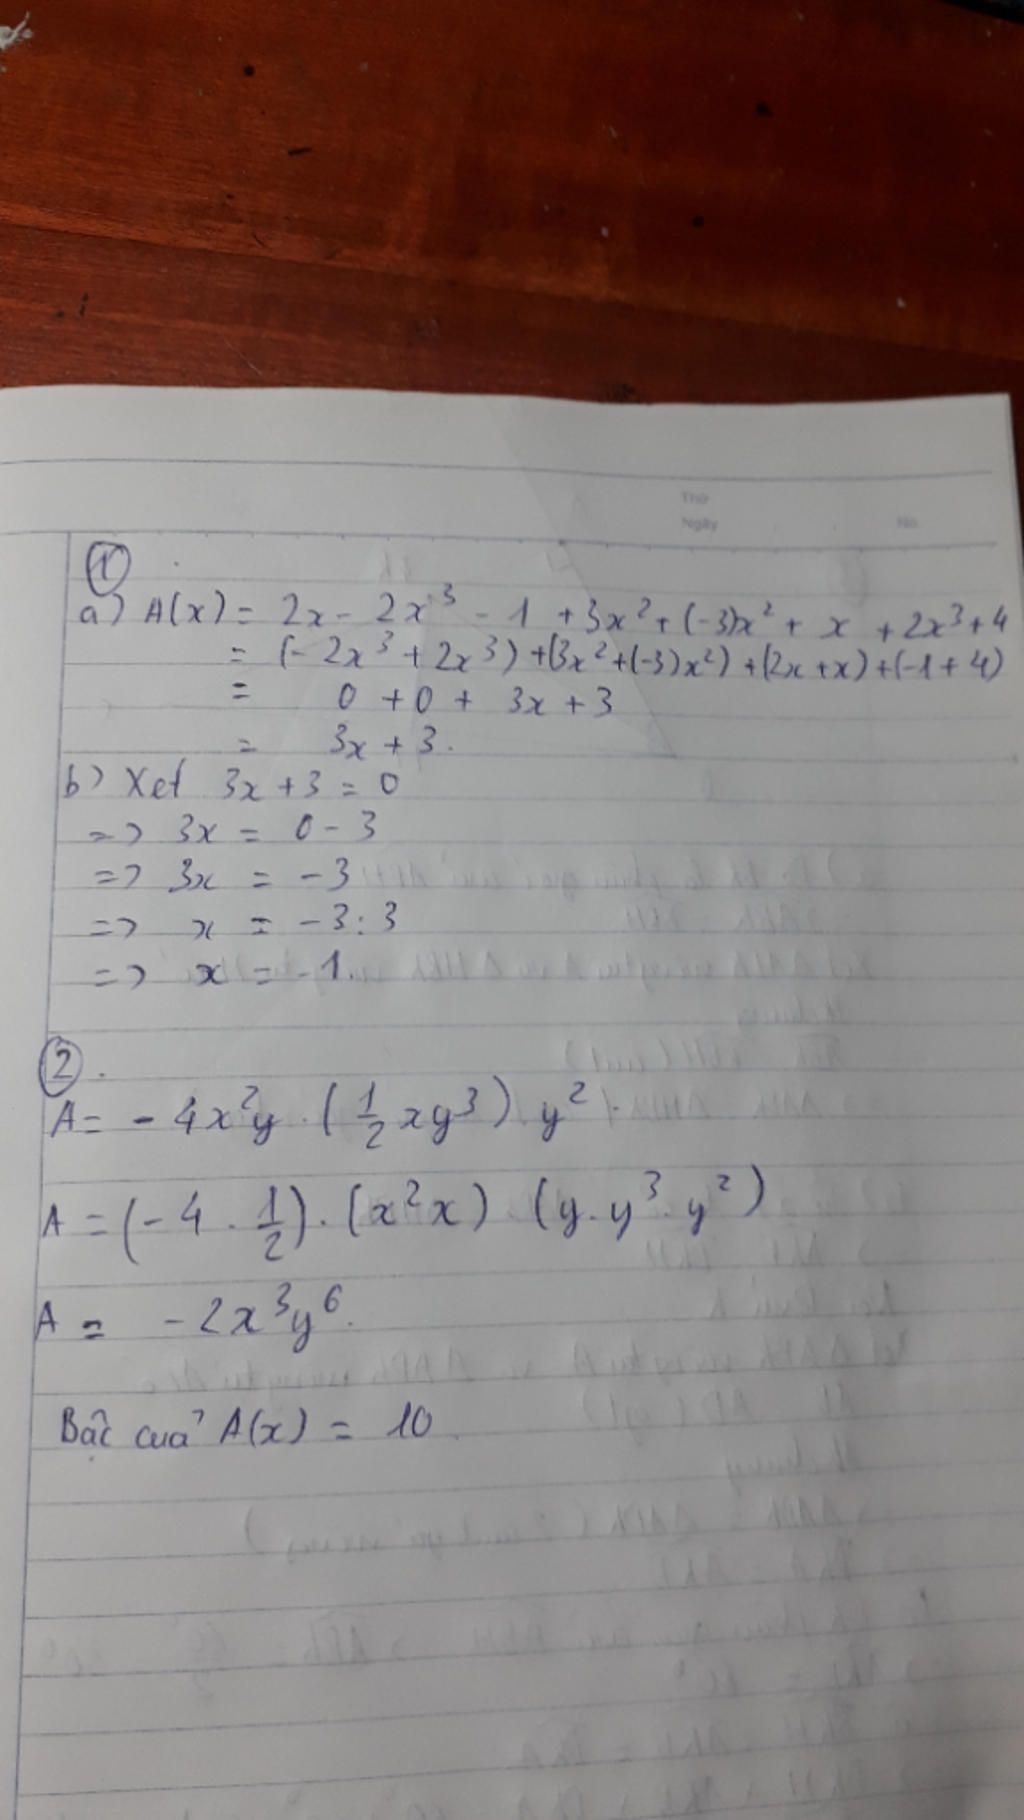 Thứ
Ngày No.
1
a) A(x) = 2x - 2x³ - 1 + 3x² + (-3)x² + x + 2x³ + 4
= (- 2x³ + 2x³) + (3x² + (-3)x²) + (2x + x) + (-1 + 4)
= 0 + 0 + 3x + 3
= 3x + 3.
b) Xet 3x + 3 = 0
=> 3x = 0 - 3
=> 3x = -3
=> x = -3 : 3
=> x = -1.
2.
A = - 4x²y . (1/2 xy³) y².
A = (-4 . 1/2) . (x²x) (y . y³ . y²)
A = -2x³y⁶.
Bậc của A(x) = 10.